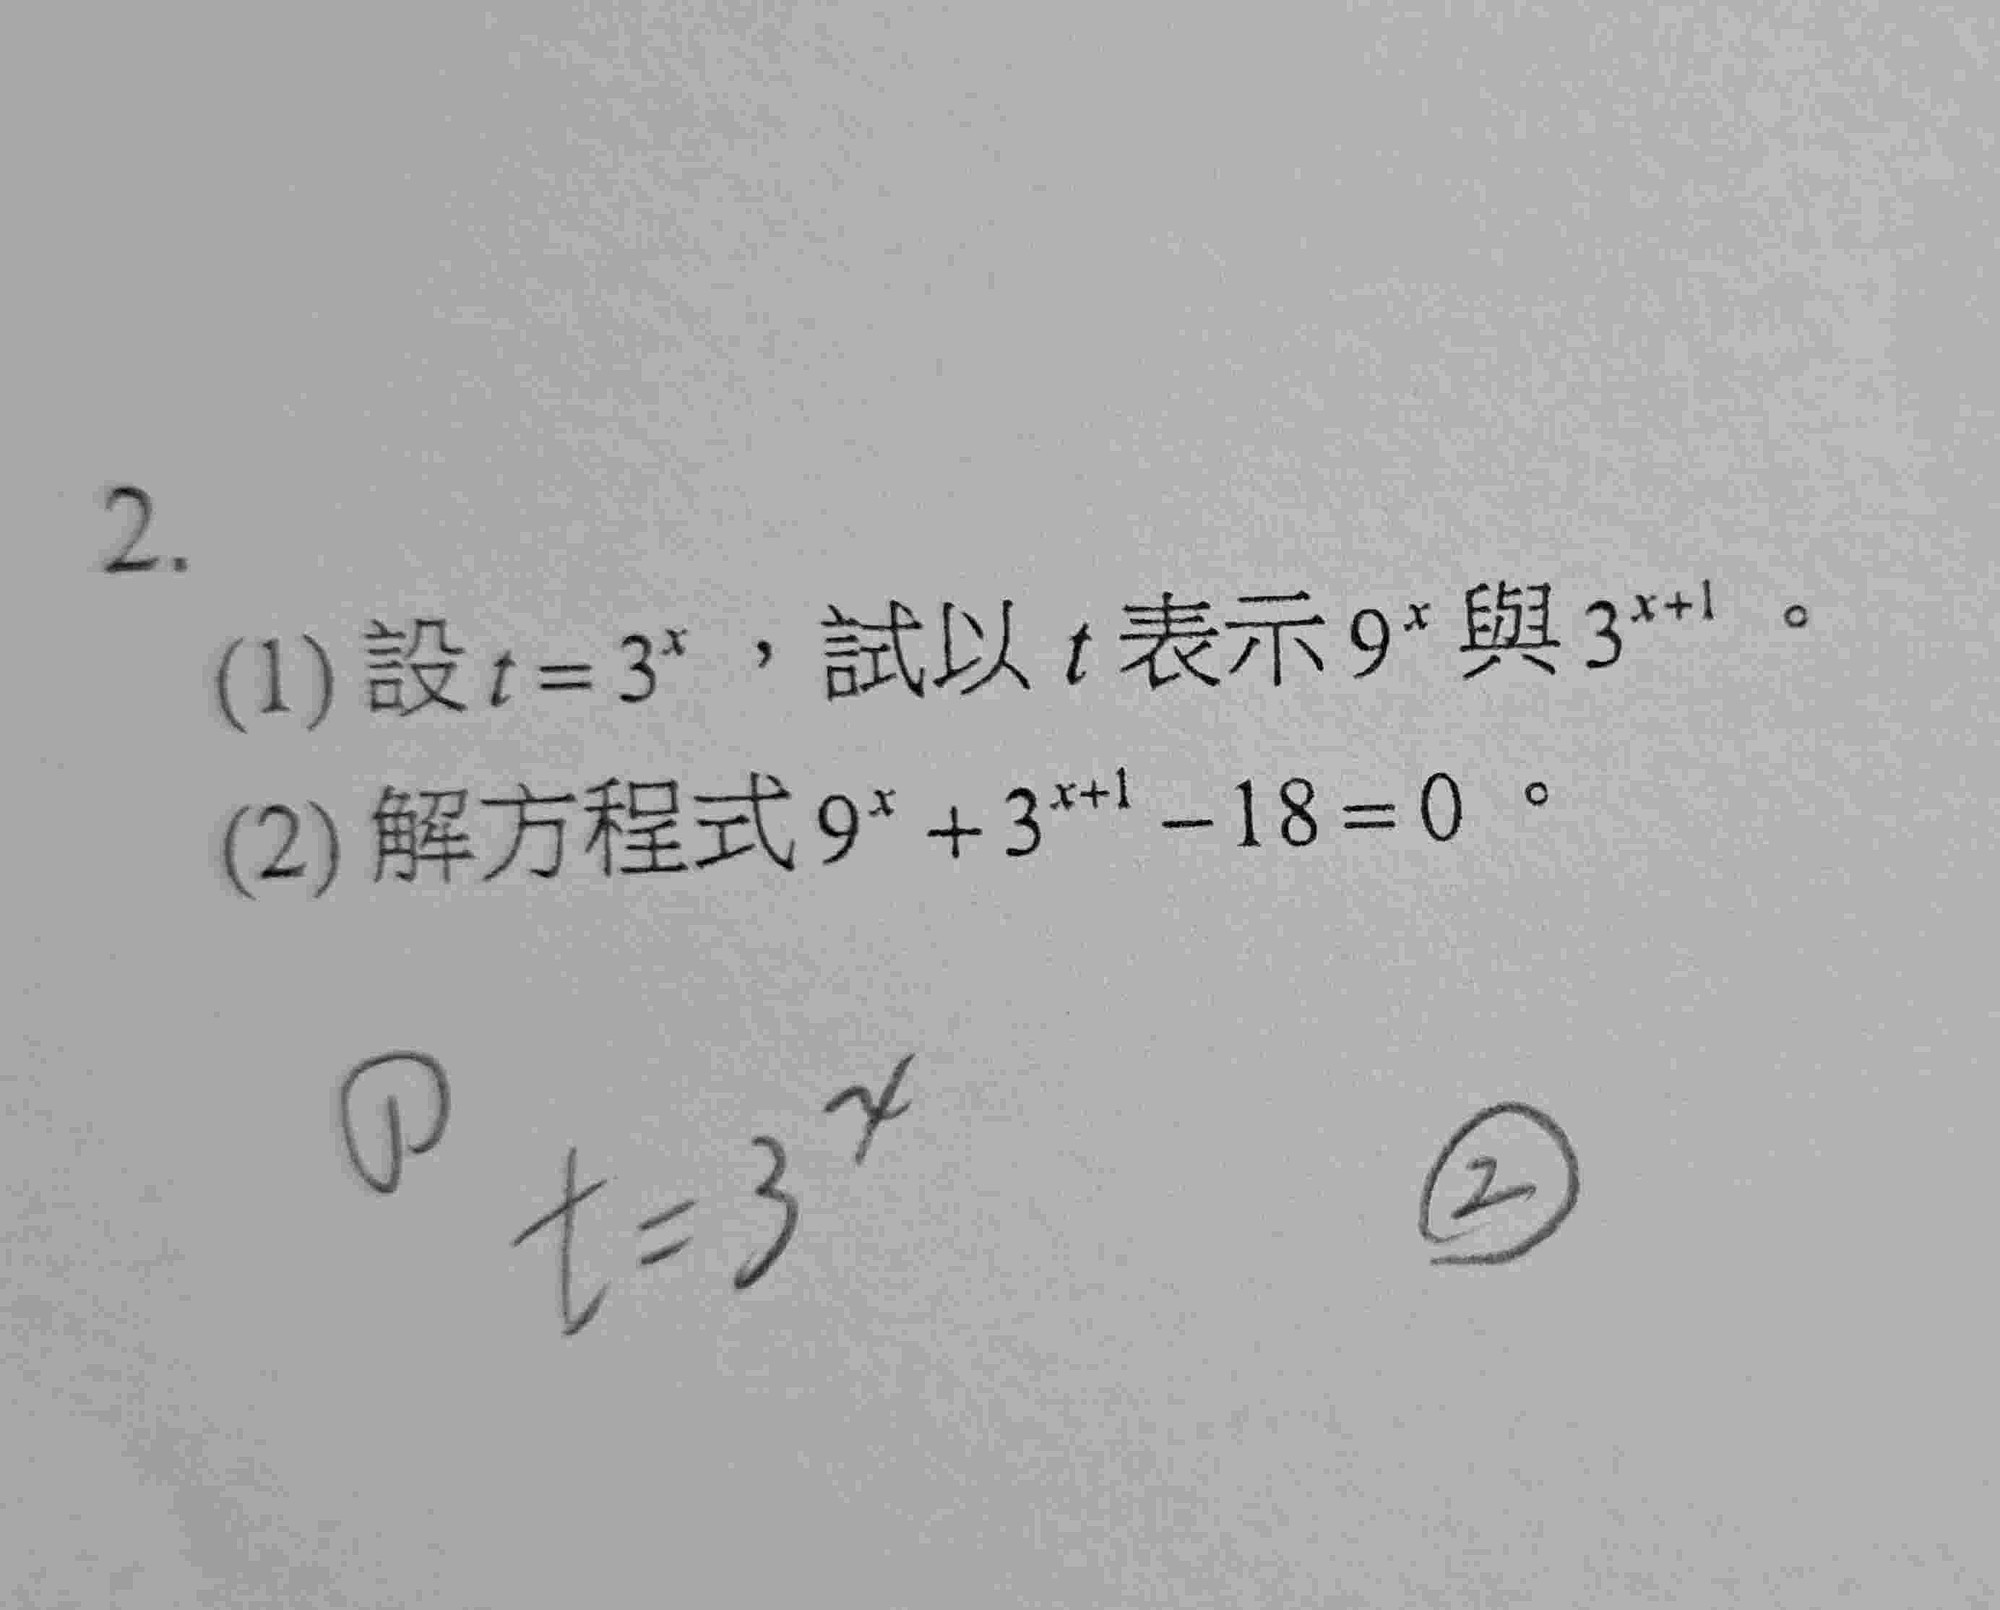 2.
(1) 設 t = 3^x，試以 t 表示 9^x 與 3^{x+1}。
(2) 解方程式 9^x + 3^{x+1} − 18 = 0。
① t = 3^x
②